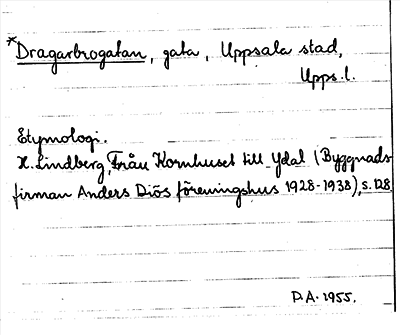 *Dragarbrogatan, gata, Uppsala stad,
Upps. l.
Etymologi.
H. Lindberg, Från Kornhuset till Ydal (Byggnads-
firman Anders Diös föreningshus 1928-1938), s. 128
D.A. 1955.